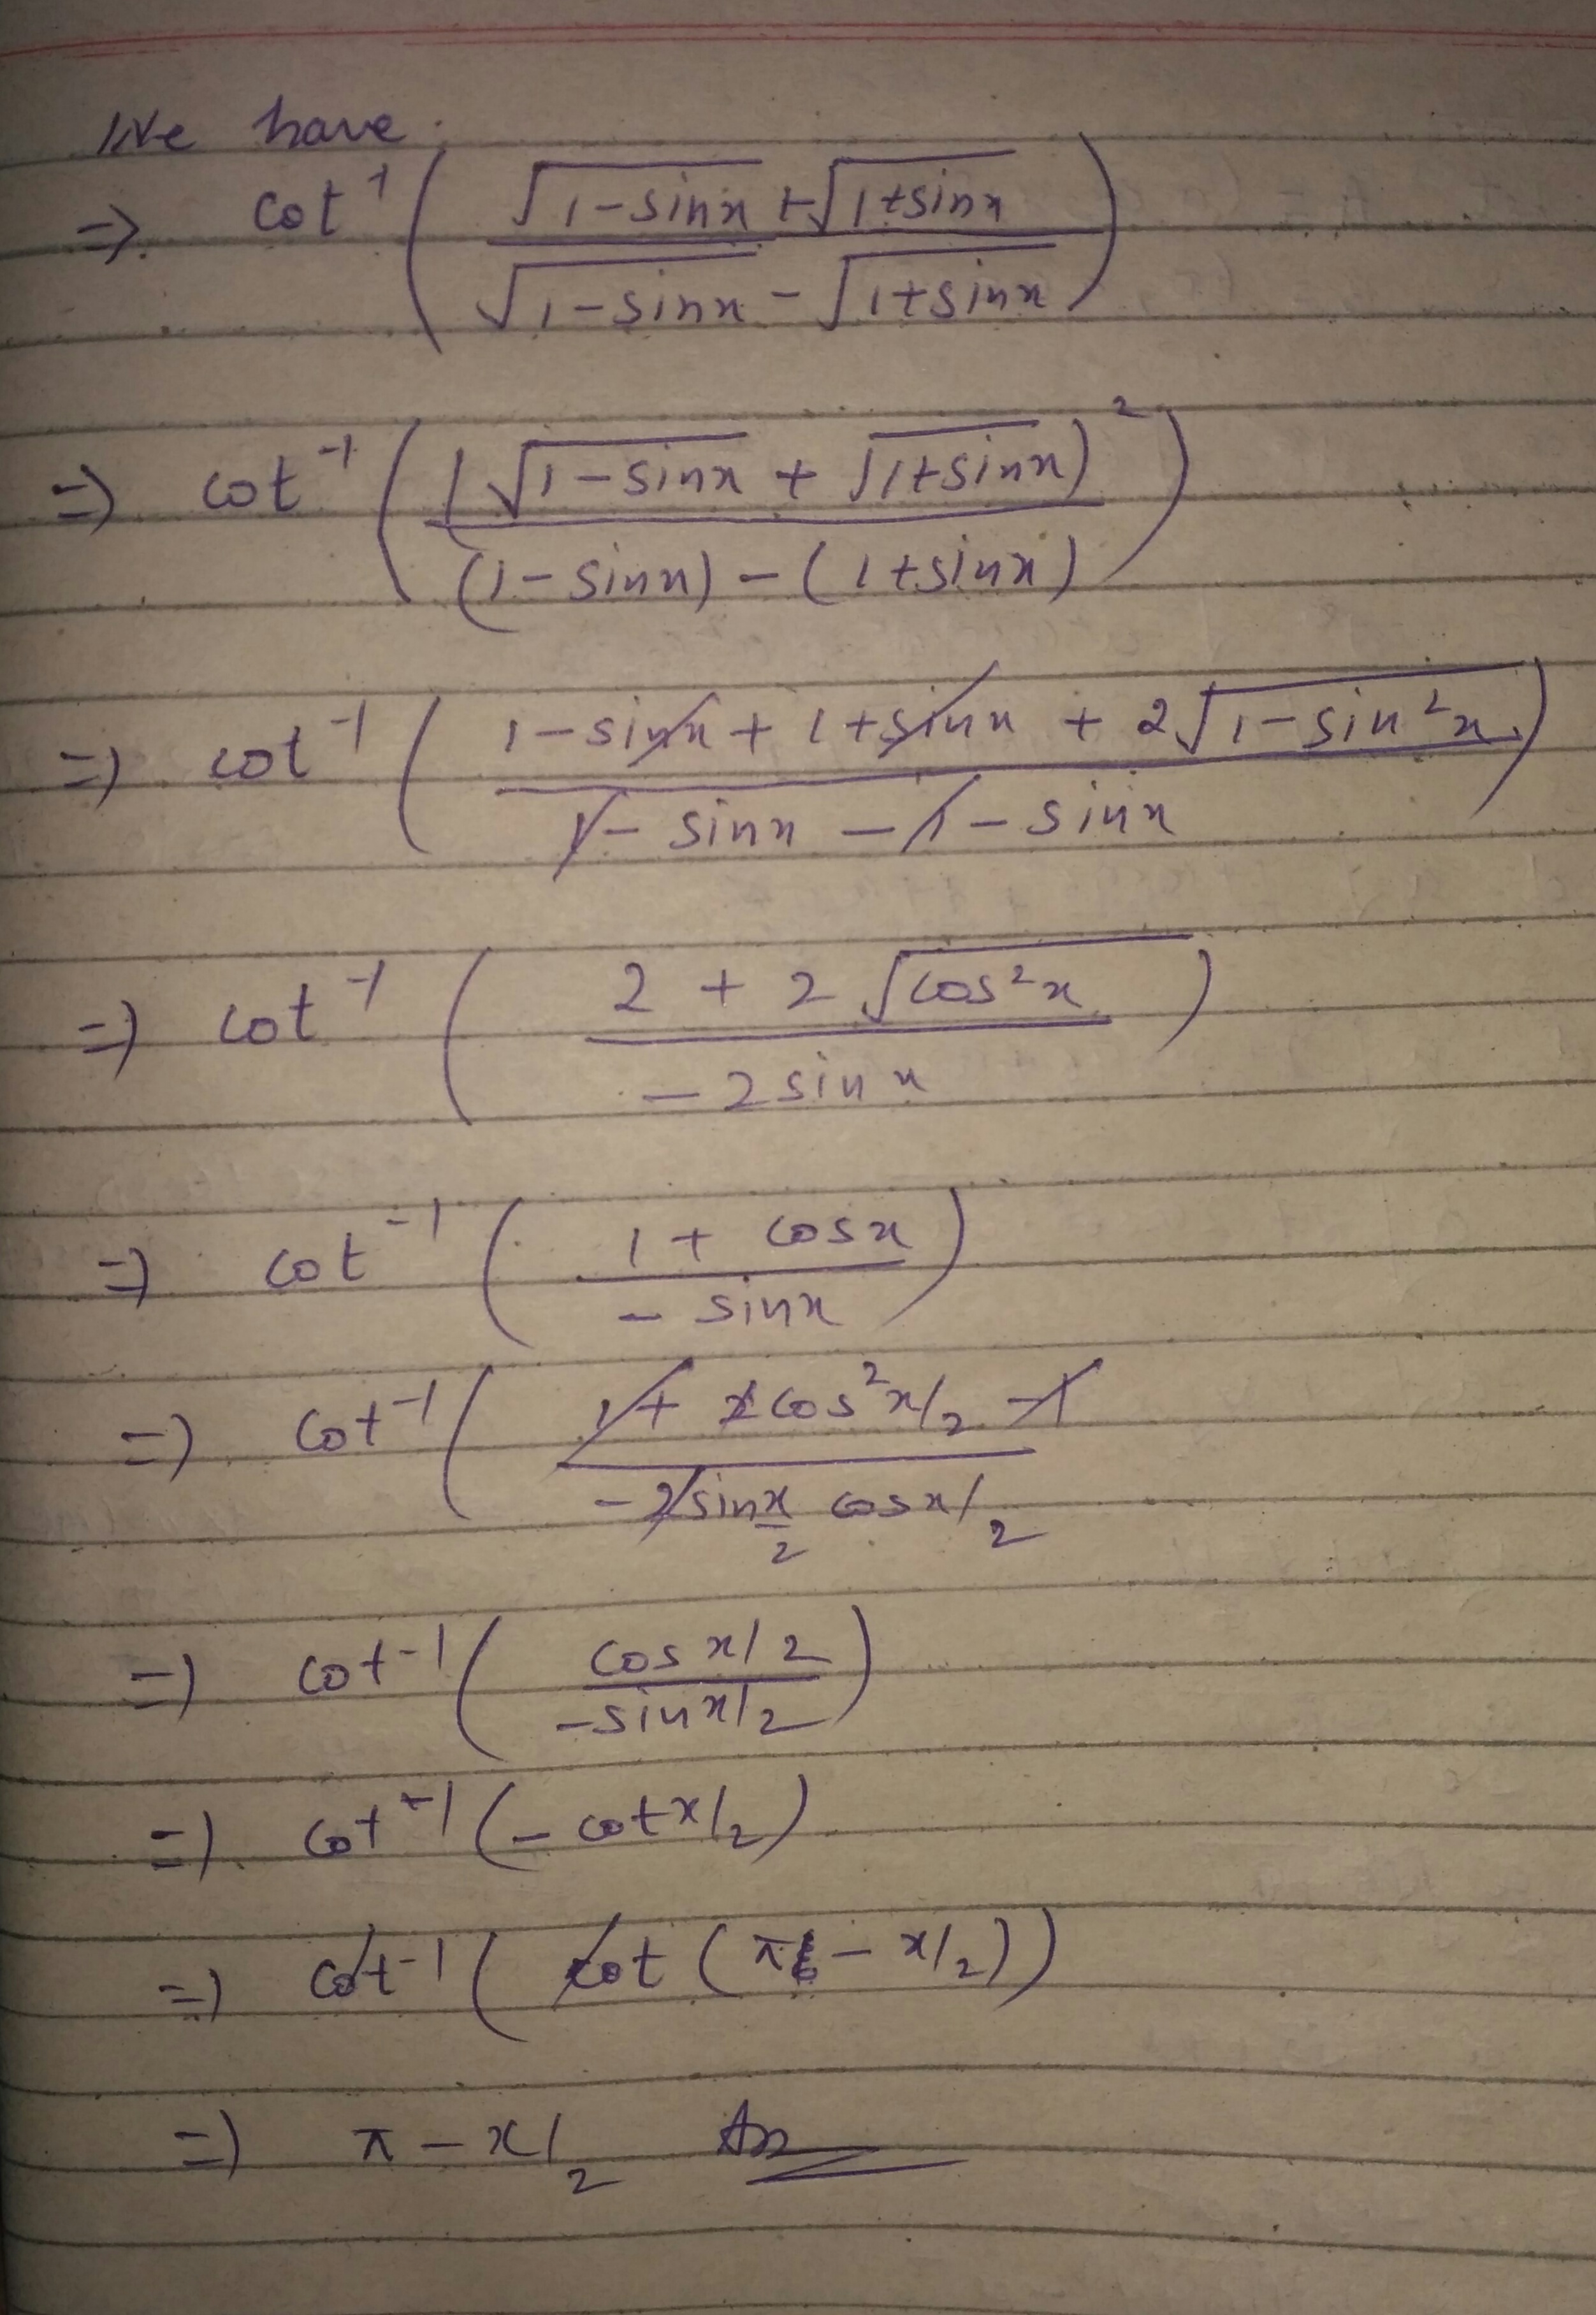 We have.
⇒ cot⁻¹ ( (√(1-sinx) + √(1+sinx)) / (√(1-sinx) - √(1+sinx)) )
⇒ cot⁻¹ ( (√(1-sinx) + √(1+sinx))² / ((1-sinx) - (1+sinx)) )
⇒ cot⁻¹ ( (1-sinx + 1+sinx + 2√(1-sin²x)) / (1-sinx - 1-sinx) )
⇒ cot⁻¹ ( (2 + 2√(cos²x)) / (-2sinx) )
⇒ cot⁻¹ ( (1 + cosx) / (-sinx) )
⇒ cot⁻¹ ( (1 + 2cos²x/2 - 1) / (-2sin x/2 cosx/2)
⇒ cot⁻¹ ( (cos x/2) / (-sin x/2) )
⇒ cot⁻¹ (-cot x/2)
⇒ cot⁻¹ ( cot (π - x/2))
⇒ π - x/2 Ans